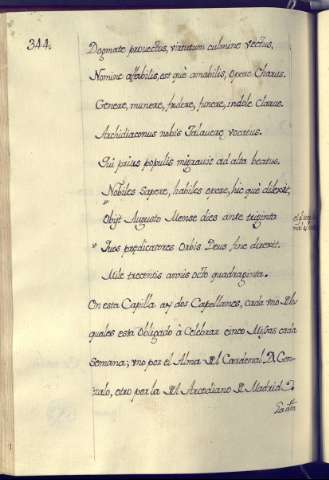 344.
Dogmate provectus, virtutum culmine vectus,
Nomine affabilis, est què amabilis, opere Charus.
Genere, munere, fœdere, funere, indole Clarus.
Archidiaconus nobis Talaveræ vocatus.
Qui prius populis migravit ad alta beatus.
Nobiles sapere, habiles opere, hic què dilexit,
Obijt Augusto Mense dies ante triginta
Tues prædicatores Orbis Deus sine duxit.
Mile trecentis annis octo quadraginta.
On esta Capilla ay dos Capellanes, cada vno de los
quales esta Obligado à Celebrar cinco Missas cada
Semana; vno por el Alma del Cardenal D. Gon-
zalo, otro por la del Arcediano de Madrid D.